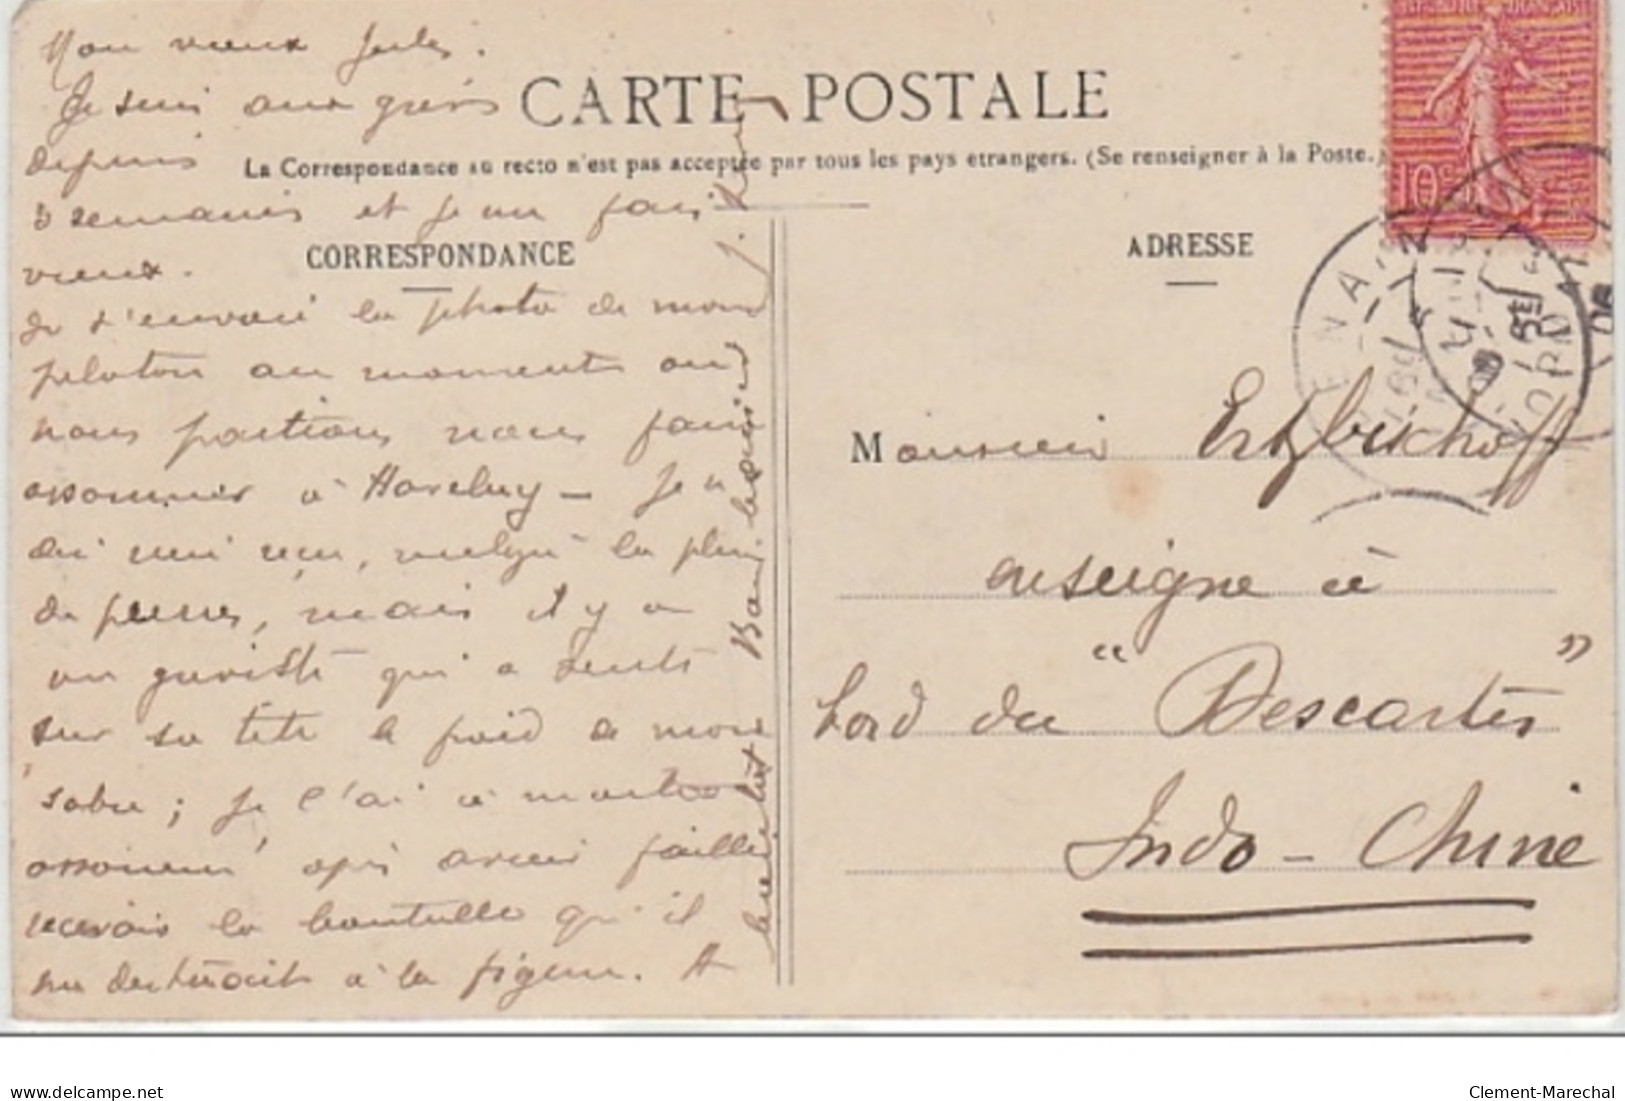 Mon vieux Jules.
Je suis aux grèves
depuis
3 semaines et je me fais
vieux.
Je t'envoie la photo de mon
peloton au moment où
nous partions nous faire
assommer à Haveluy – Je n'
ai rien reçu, malgré la pluie
de pierres, mais il y a
un gréviste qui a senti
sur sa tête le poid de mon
sabre; je l'ai à moitié
assommé après avoir failli
recevoir la bouteille qu'il
me destinait à la figure. A
bientôt Bons baisers
CARTE POSTALE
La Correspondance au recto n'est pas acceptée par tous les pays etrangers. (Se renseigner à la Poste.)
CORRESPONDANCE
ADRESSE
REPUBLIQUE FRANÇAISE
10c
DENAIN
NORD
Monsieur Ertzbischoff
enseigne à
bord du "Descartes"
Indo-Chine
delcampe.net
Clement-Marechal